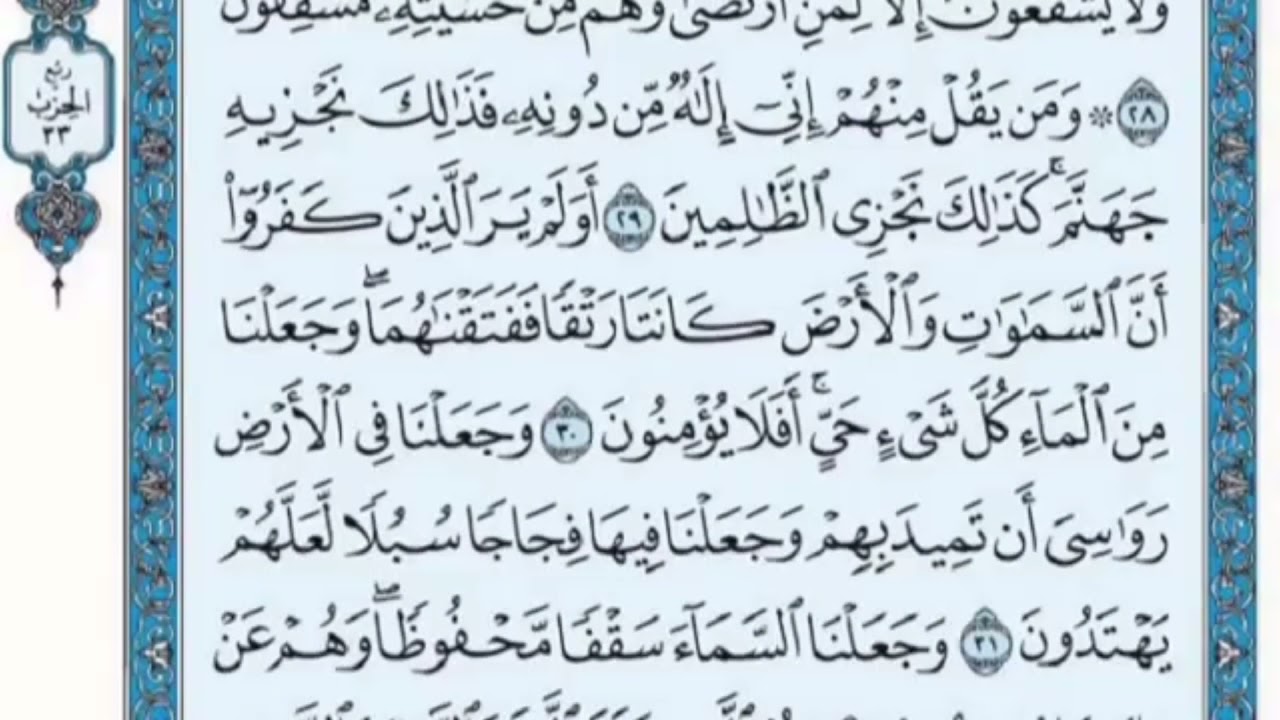 ولا يشفعون إلا لمن ارتضى وهم من خشيته مشفقون
٢٨ ۞ وَمَن يَقُلْ مِنْهُمْ إِنِّىٓ إِلَٰهٌ مِّن دُونِهِۦ فَذَٰلِكَ نَجْزِيهِ
جَهَنَّمَ ۚ كَذَٰلِكَ نَجْزِى ٱلظَّٰلِمِينَ ٢٩ أَوَلَمْ يَرَ ٱلَّذِينَ كَفَرُوٓا۟
أَنَّ ٱلسَّمَٰوَٰتِ وَٱلْأَرْضَ كَانَتَا رَتْقًا فَفَتَقْنَٰهُمَا ۖ وَجَعَلْنَا
مِنَ ٱلْمَآءِ كُلَّ شَىْءٍ حَىٍّ ۚ أَفَلَا يُؤْمِنُونَ ٣٠ وَجَعَلْنَا فِى ٱلْأَرْضِ
رَوَٰسِىَ أَن تَمِيدَ بِهِمْ وَجَعَلْنَا فِيهَا فِجَاجًا سُبُلًا لَّعَلَّهُمْ
يَهْتَدُونَ ٣١ وَجَعَلْنَا ٱلسَّمَآءَ سَقْفًا مَّحْفُوظًا ۖ وَهُمْ عَنْ
ربع
الحزب
٣٣